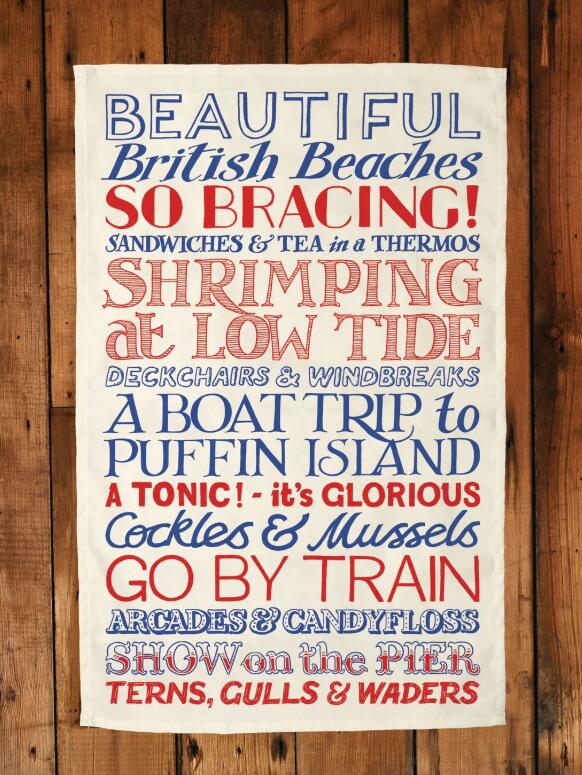 BEAUTIFUL
British Beaches
SO BRACING!
SANDWICHES & TEA in a THERMOS
SHRIMPING
at LOW TIDE
DECKCHAIRS & WINDBREAKS
A BOAT TRIP to
PUFFIN ISLAND
A TONIC! - it's GLORIOUS
Cockles & Mussels
GO BY TRAIN
ARCADES & CANDYFLOSS
SHOW on the PIER
TERNS, GULLS & WADERS